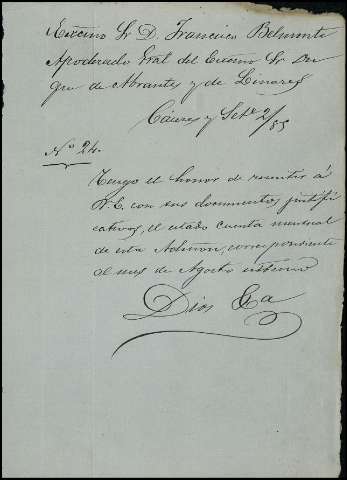 Excmo Sr D. Francisco Belmonte
Apoderado Gral del Excmo Sr Du
que de Abrantes y de Linares
Cáceres y Setre 2/85
No 24.
Tengo el honor de remitir á
V. E. con sus documentos justifi
cativos, el estado cuenta mensual
de esta Admon, correspondiente
al mes de Agosto último
Dios &a